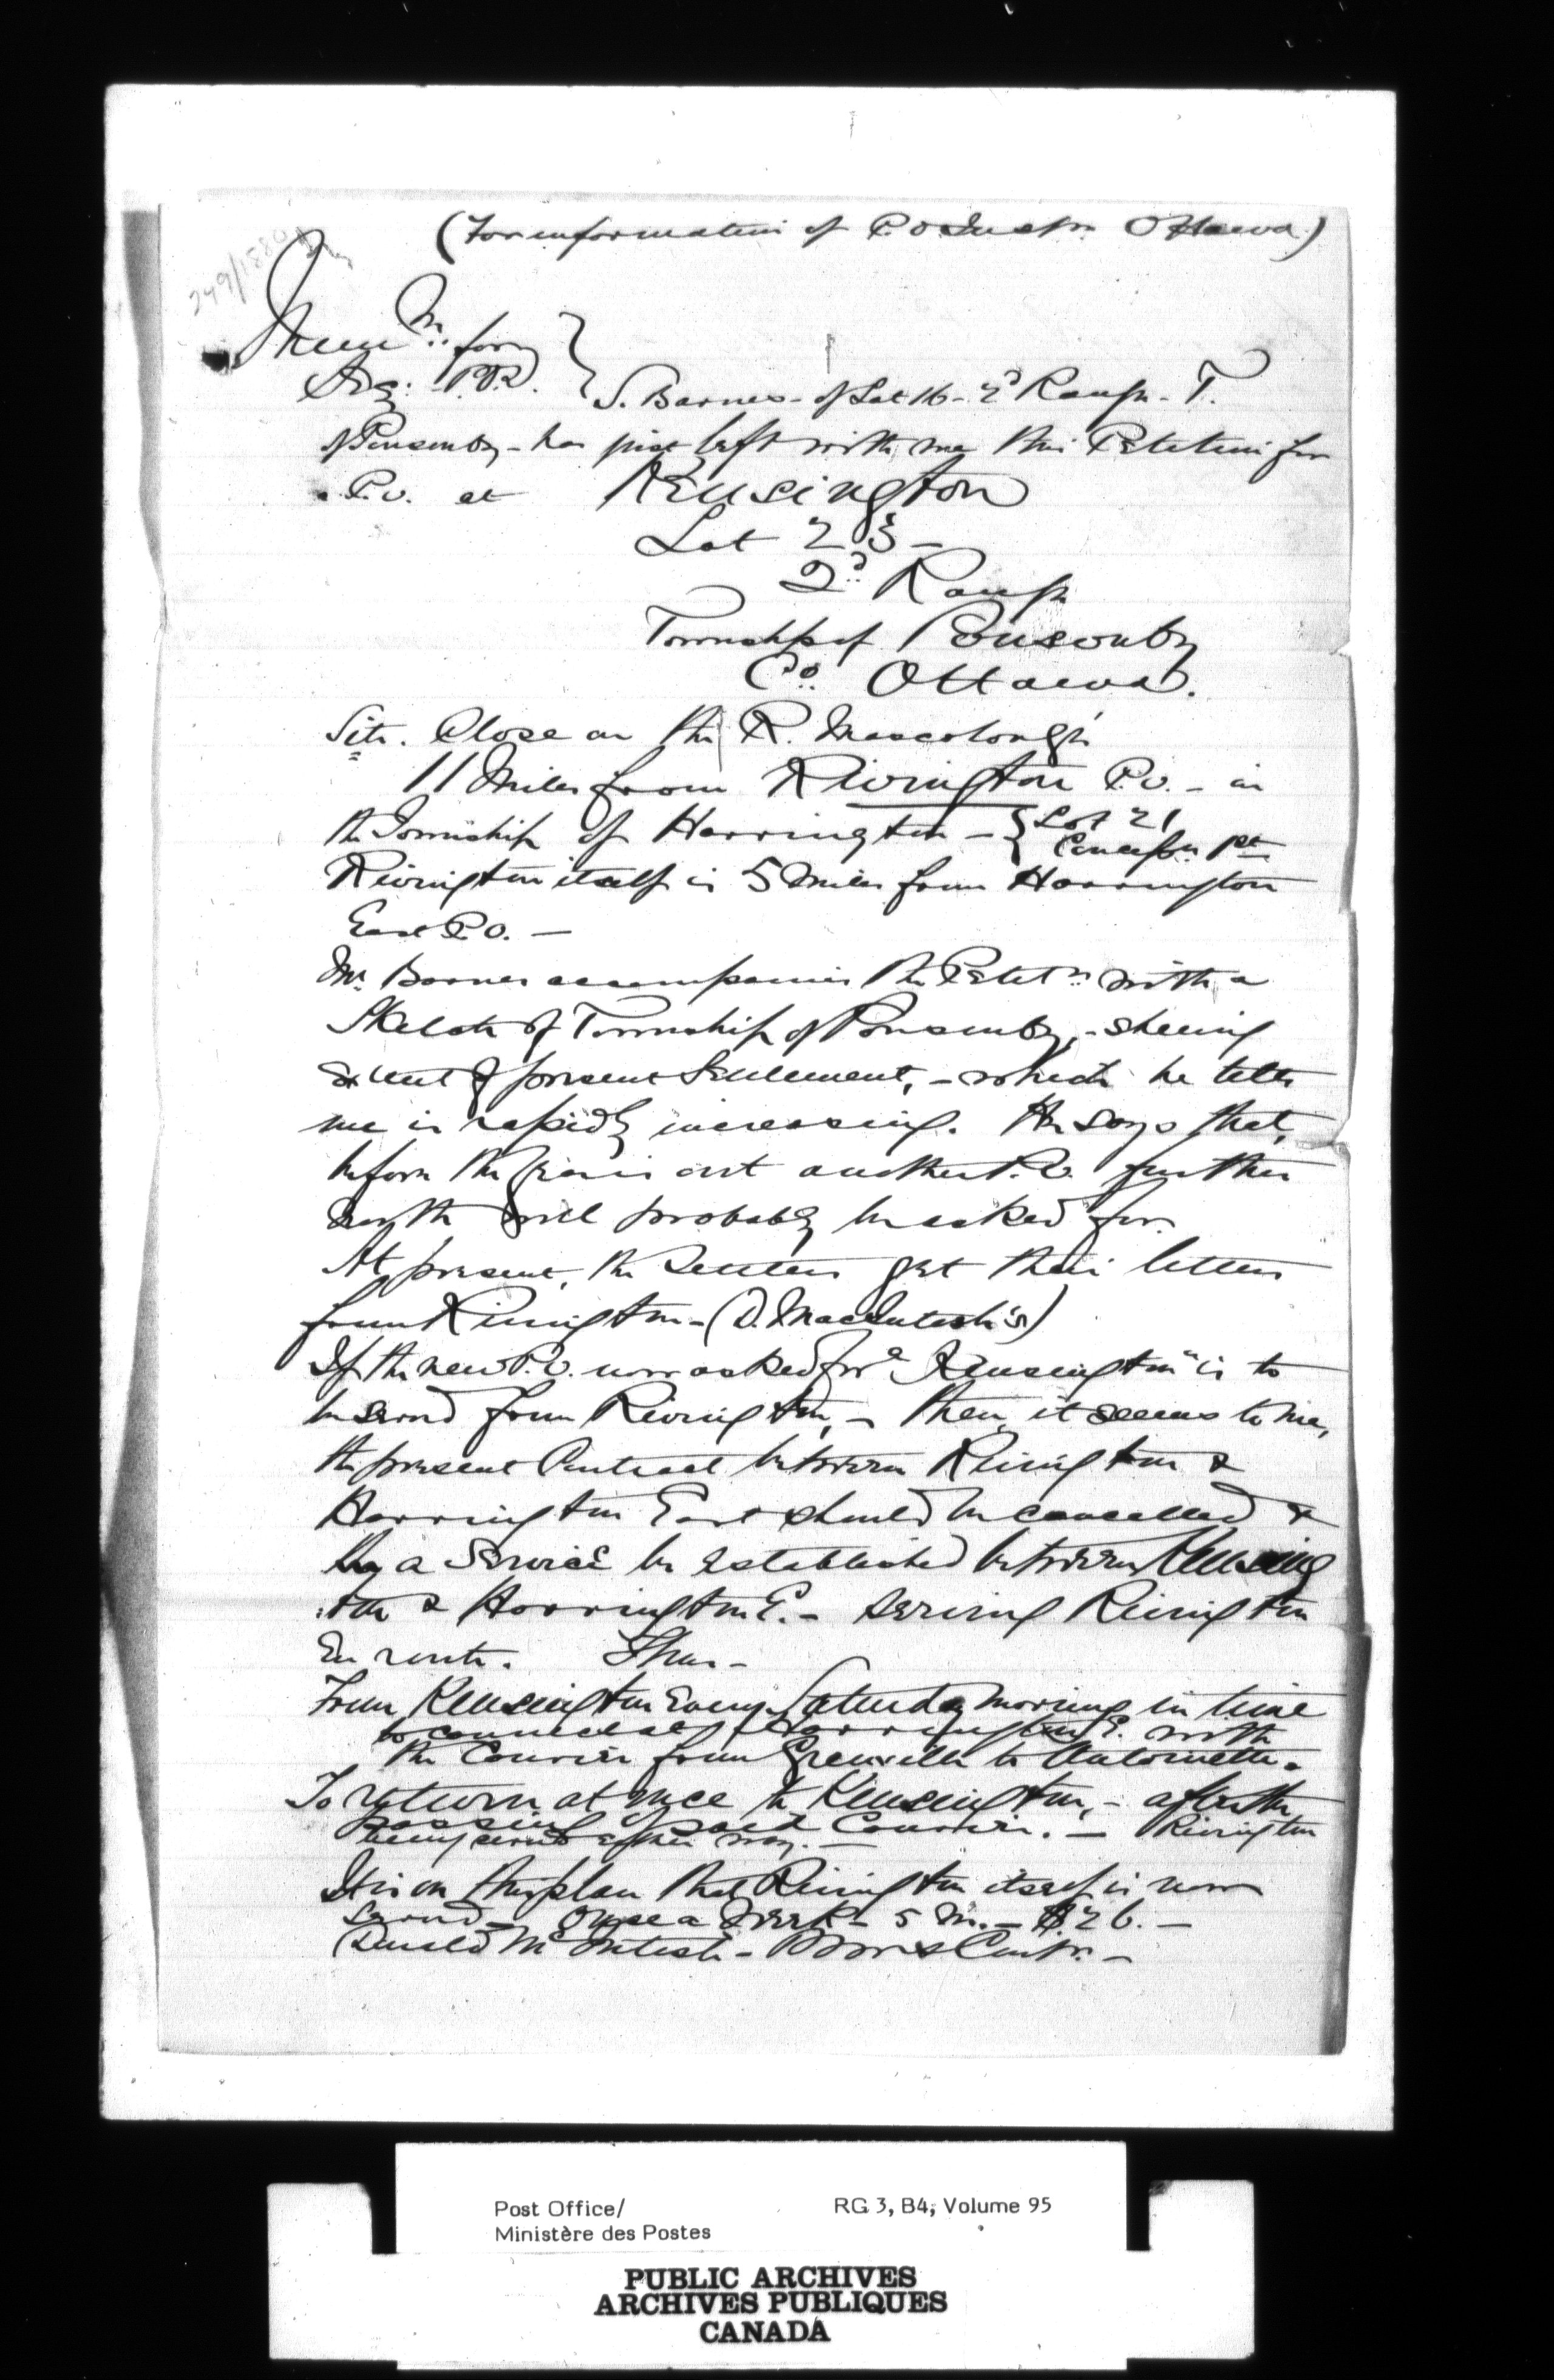 (For information of P.O Inspr Ottawa)
249/1880
Memm. for
S. Barnes - of Lot 16 - 2d Range - T.
of Ponsonby - has just left with me this Petition for
a P.O. at Kensington
Lot 23 -
2d Range
Township of Ponsonby
Co. Ottawa.
Site. Close on the R. Mascolonge
11 Miles from Rivington P.O. - in
the Township of Harrington - { Lot 21
Concessn 1st
Rivington itself is 5 miles from Harrington
East P.O. -
Mr. Barnes accompanies the Petitn with a
Sketch of Township of Ponsonby, - shewing
extent of present Settlement, - which he tells
me is rapidly increasing. He says that,
before the year is out another P.O. further
North will probably be asked for.
At present, the Settlers get their letters
from Rivington - (D. MacIntosh's)
If the new P.O. now asked for "Kensington" is to
be served from Rivington, - then, it seems to me,
the present Contract between Rivington &
Harrington East should be cancelled &
a Service be established between Kensing
:ton & Harrington E. - serving Rivington
En route. Thus -
From Kensington Every Saturday morning in time
to connect at Harrington E. with
the Courier from Grenville to Antoinette.
To return at once to Kensington, - after the
passing of said Courier. - Rivington
being served each way. -
It is on this plan that Rivington itself is now
served - Once a Week - 5 M. - $26. -
Donald McIntosh - P.M. & Contr. -
Post Office/
Ministère des Postes
RG 3, B4, Volume 95
PUBLIC ARCHIVES
ARCHIVES PUBLIQUES
CANADA